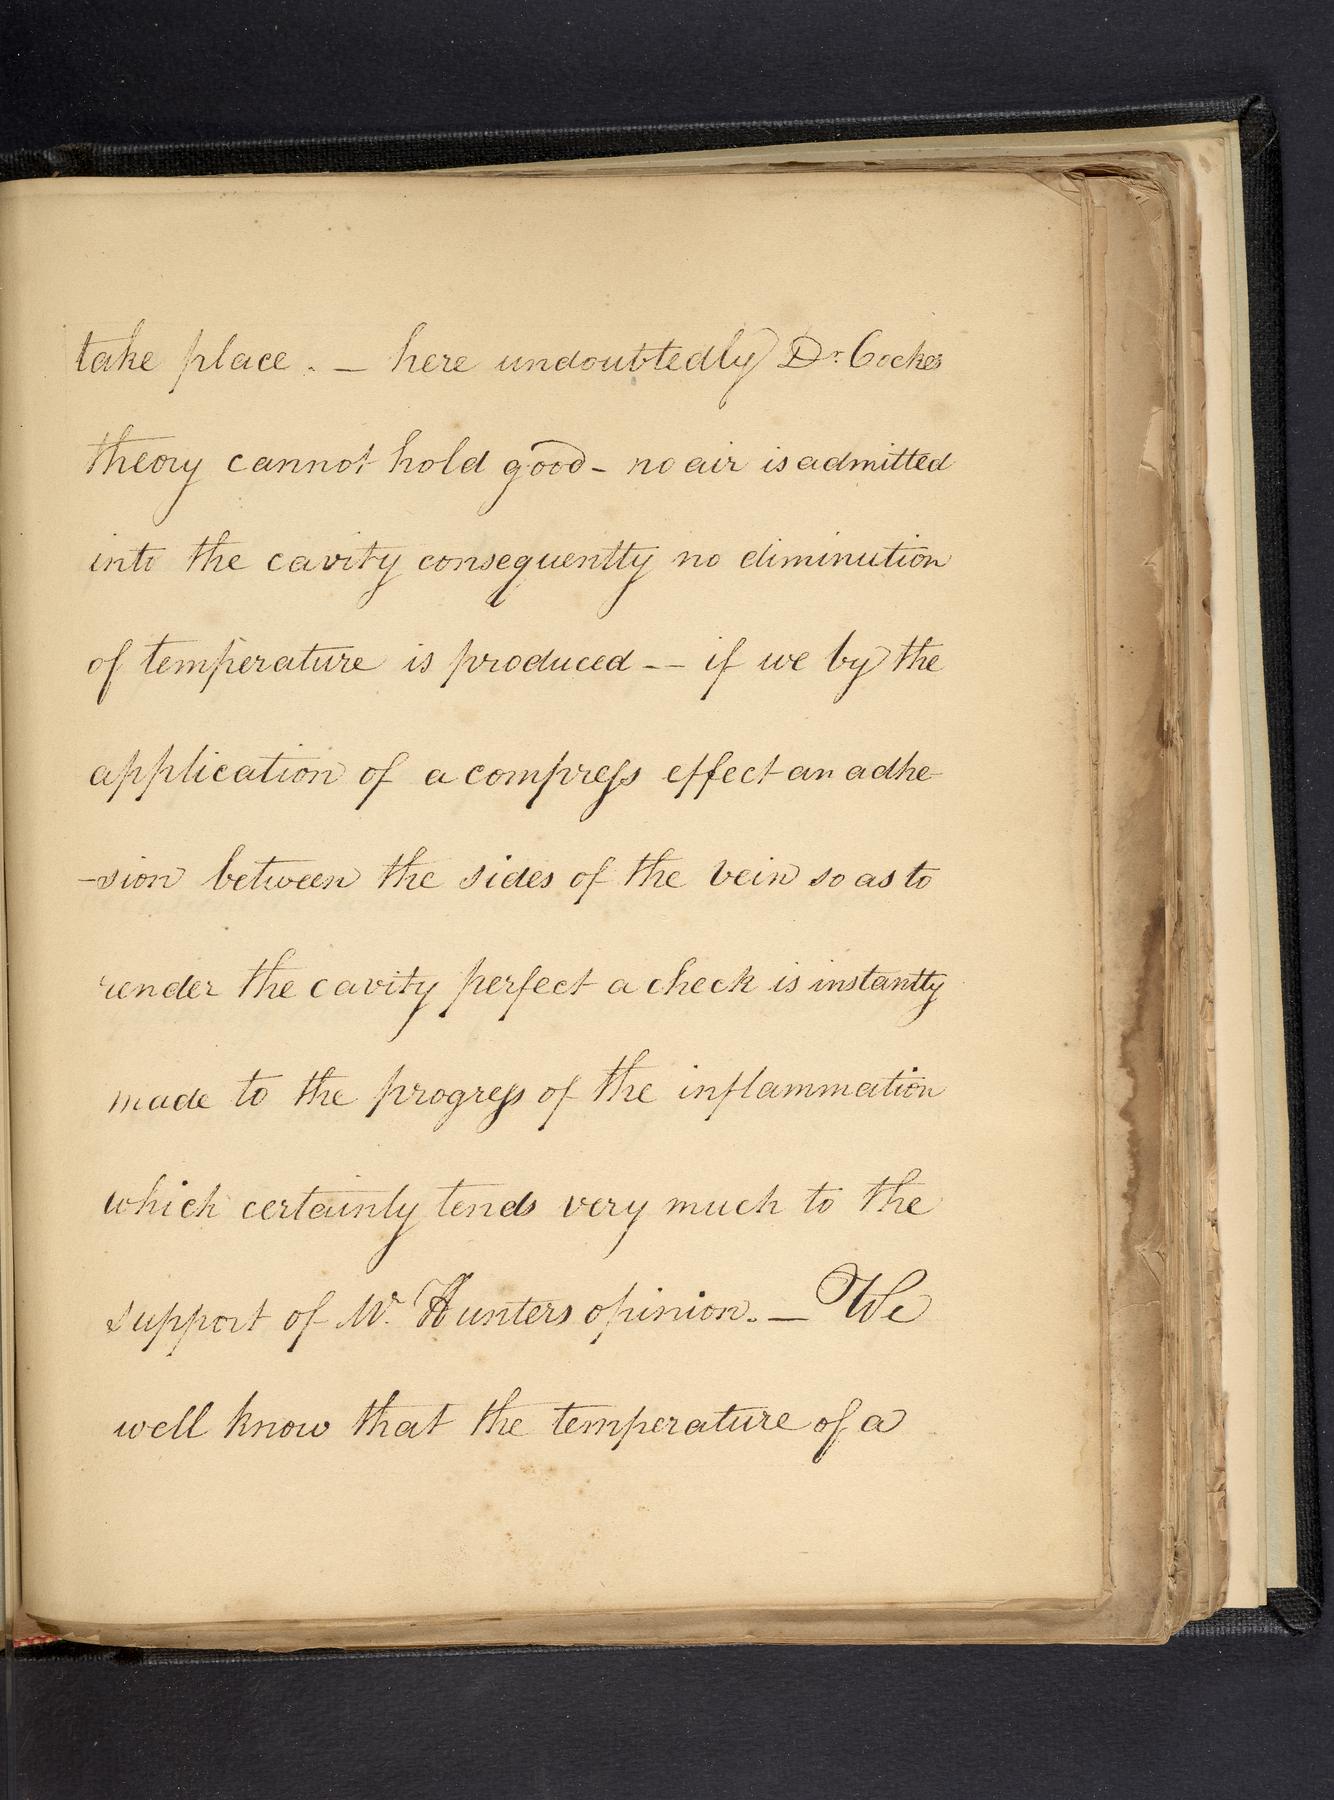 take place. — here undoubtedly Dr. Cockes
theory cannot hold good - no air is admitted
into the cavity consequently no diminution
of temperature is produced -- if we by the
application of a compress effect an adhe-
-sion between the sides of the vein so as to
render the cavity perfect a check is instantly
made to the progress of the inflammation
which certainly tends very much to the
support of Mr. Hunters opinion. — We
well know that the temperature of a